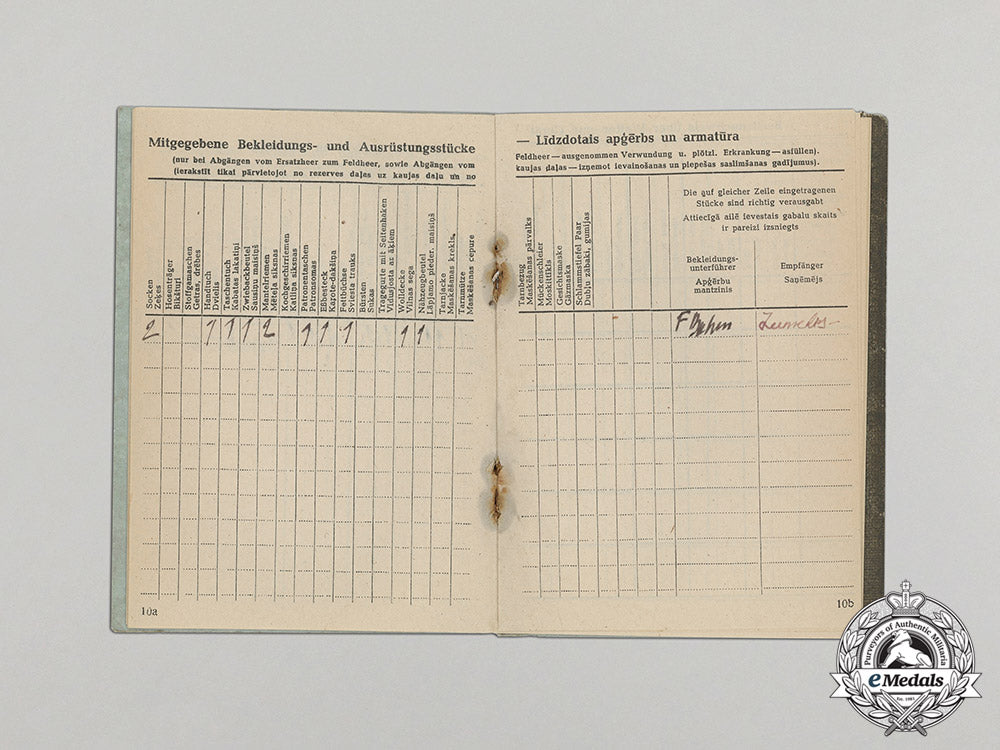 Mitgegebene Bekleidungs- und Ausrüstungsstücke
(nur bei Abgängen vom Ersatzheer zum Feldheer, sowie Abgängen vom
(ierakstīt tikai pārvietojot no rezerves daļas uz kaujas daļu un no
Socken
Zeķes
Hosenträger
Bikšturi
Stoffgamaschen
Getras, drēbes
Handtuch
Dvielis
Taschentuch
Kabatas lakatiņi
Zwiebackbeutel
Sausiņu maisiņš
Mantelriemen
Mēteļa siksnas
Kochgeschirriemen
Katliņa siksnas
Patronentaschen
Patronsomas
Eßbesteck
Karote-dakšiņa
Fettbüchse
Sviesta trauks
Bürsten
Sukas
Tragegurte mit Seitenhaken
Vidusjosta ar āķiem
Wolldecke
Vilnas sega
Nähzeugbeutel
Lāpjamo pieder. maisiņš
Tarnjacke
Maskēšanas krekls
Tarnmütze
Maskēšanas cepure
2 1 1 1 2 1 1 1 1 1
10a
— Līdzdotais apģērbs un armatūra
Feldheer — ausgenommen Verwundung u. plötzl. Erkrankung — asfüllen).
kaujas daļas — izņemot ievainošanas un piepešas saslimšanas gadījumus).
Tarnbezug
Maskēšanas pārvalks
Mückenschleier
Moskittīkls
Gesichtsmaske
Gāzmaska
Schlammstiefel Paar
Dubļu zābaki, gumijas
Die auf gleicher Zeile eingetragenen
Stücke sind richtig verausgabt
Attiecīgā ailē ievestais gabalu skaits
ir pareizi izsniegts
Bekleidungs-
unterführer
Apģērbu
mantzinis
Empfänger
Saņēmējs
-
10b
Purveyors of Authentic Militaria
eMedals
Est. 1981